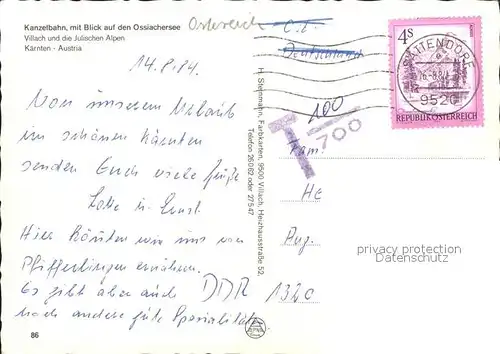 Kanzelbahn, mit Blick auf den Ossiachersee
Villach und die Julischen Alpen
Kärnten - Austria
Österreich
Deutschland
14.8.84.
Von unserem Urlaub
im schönen Kärnten
senden Euch viele Grüße
Lotte u. Ernst
Hier könnten wir uns von
Pfifferlingen ernähren.
Es gibt aber auch
noch andere gute Spezialitäten
86
H. Steinmann, Farbkarten, 9500 Villach, Heizhausstraße 52,
Telefon 26062 oder 27547
100
T 700
4S
REPUBLIK ÖSTERREICH
SATTENDORF
9520
Fam.
He
Aug.
DDR 1320
privacy protection
Datenschutz